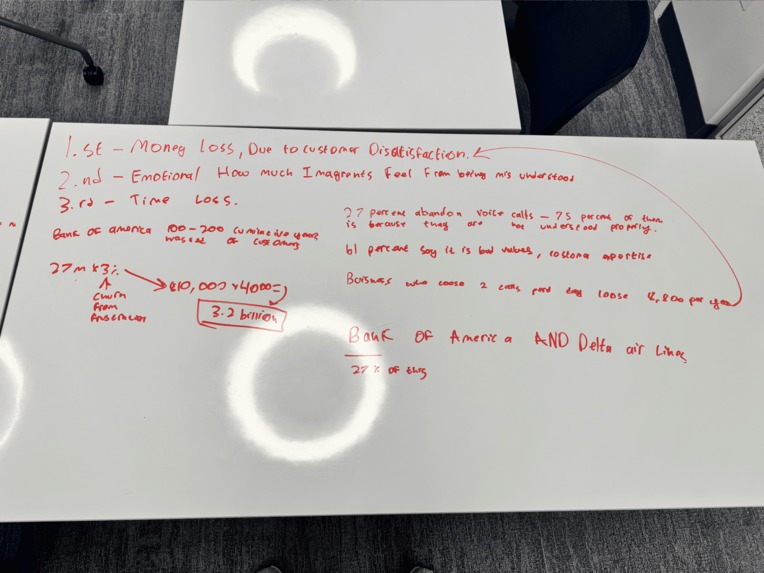 1.st - Money Loss, Due to customer Disatisfaction.
2.nd - Emotional How much Imagrents Feel From being mis understood
3.rd - Time Loss.
Bank of america 100-200 cumulative years
wasted of customers
27m x 3%
810,000 x 4000 =
churn
From
3.2 billion
27 percent abandon voice calls - 75 percent of them
is because they are not understood properly.
61 percent say it is bad
Business who loose 2 calls per day loose per year
Bank OF America AND Delta air Lines
27% of this